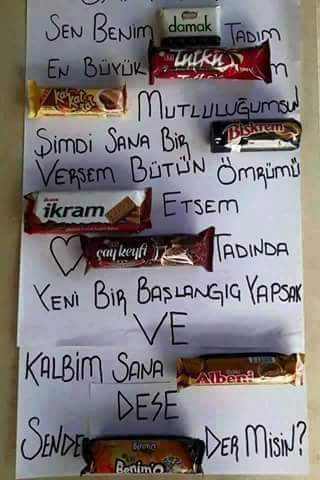 SEN BENİM damak TADIM
EN BÜYÜK tutku M
kat kat tat MUTLULUĞUMSUN
ŞİMDİ SANA BİR Biskrem
VERSEM BÜTÜN ÖMRÜMÜ
ikram ETSEM
çay keyfi TADINDA
YENİ BİR BAŞLANGIÇ YAPSAK
VE
KALBİM SANA Albeni
DESE
SENDE Benimo Benim'O DER MİSİN?